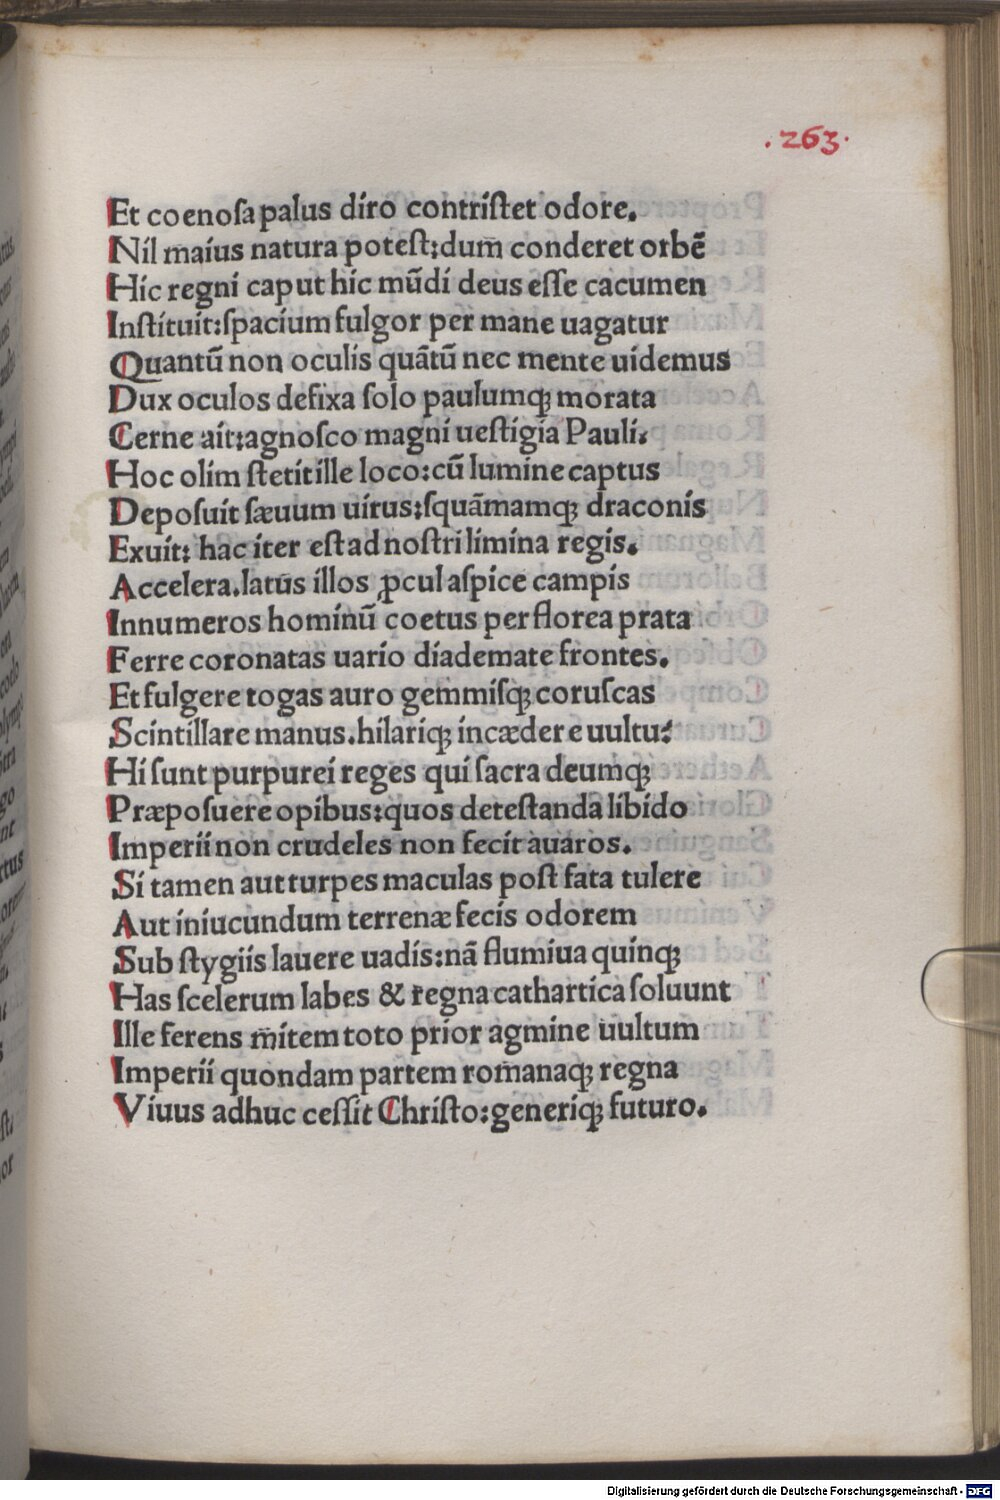 .263.
Et coenosa palus diro contristet odore.
Nil maius natura potest: dum̄ conderet orbē
Hic regni caput hic mūdi deus esse cacumen
Instituit: spacium fulgor per mane uagatur
Quantū non oculis quātū nec mente uidemus
Dux oculos defixa solo paulumqꝫ morata
Cerne ait: agnosco magni uestigia Pauli.
Hoc olim stetit ille loco: cū lumine captus
Deposuit sæuum uirus: squāmamqꝫ draconis
Exuit: hac iter est ad nostri limina regis.
Accelera. latus illos ꝓcul aspice campis
Innumeros hominū coetus per florea prata
Ferre coronatas uario diademate frontes.
Et fulgere togas auro gemmisqꝫ coruscas
Scintillare manus. hilariqꝫ incædere uultu:
Hi sunt purpurei reges qui sacra deumqꝫ
Præposuere opibus: quos detestanda libido
Imperii non crudeles non fecit auaros.
Si tamen aut turpes maculas post fata tulere
Aut iniucundum terrenæ fecis odorem
Sub stygiis lauere uadis: nā flumiua quinqꝫ
Has scelerum labes & regna cathartica soluunt
Ille ferens mītem toto prior agmine uultum
Imperii quondam partem romanaqꝫ regna
Viuus adhuc cessit Christo: generiqꝫ futuro.
Digitalisierung gefördert durch die Deutsche Forschungsgemeinschaft - DFG